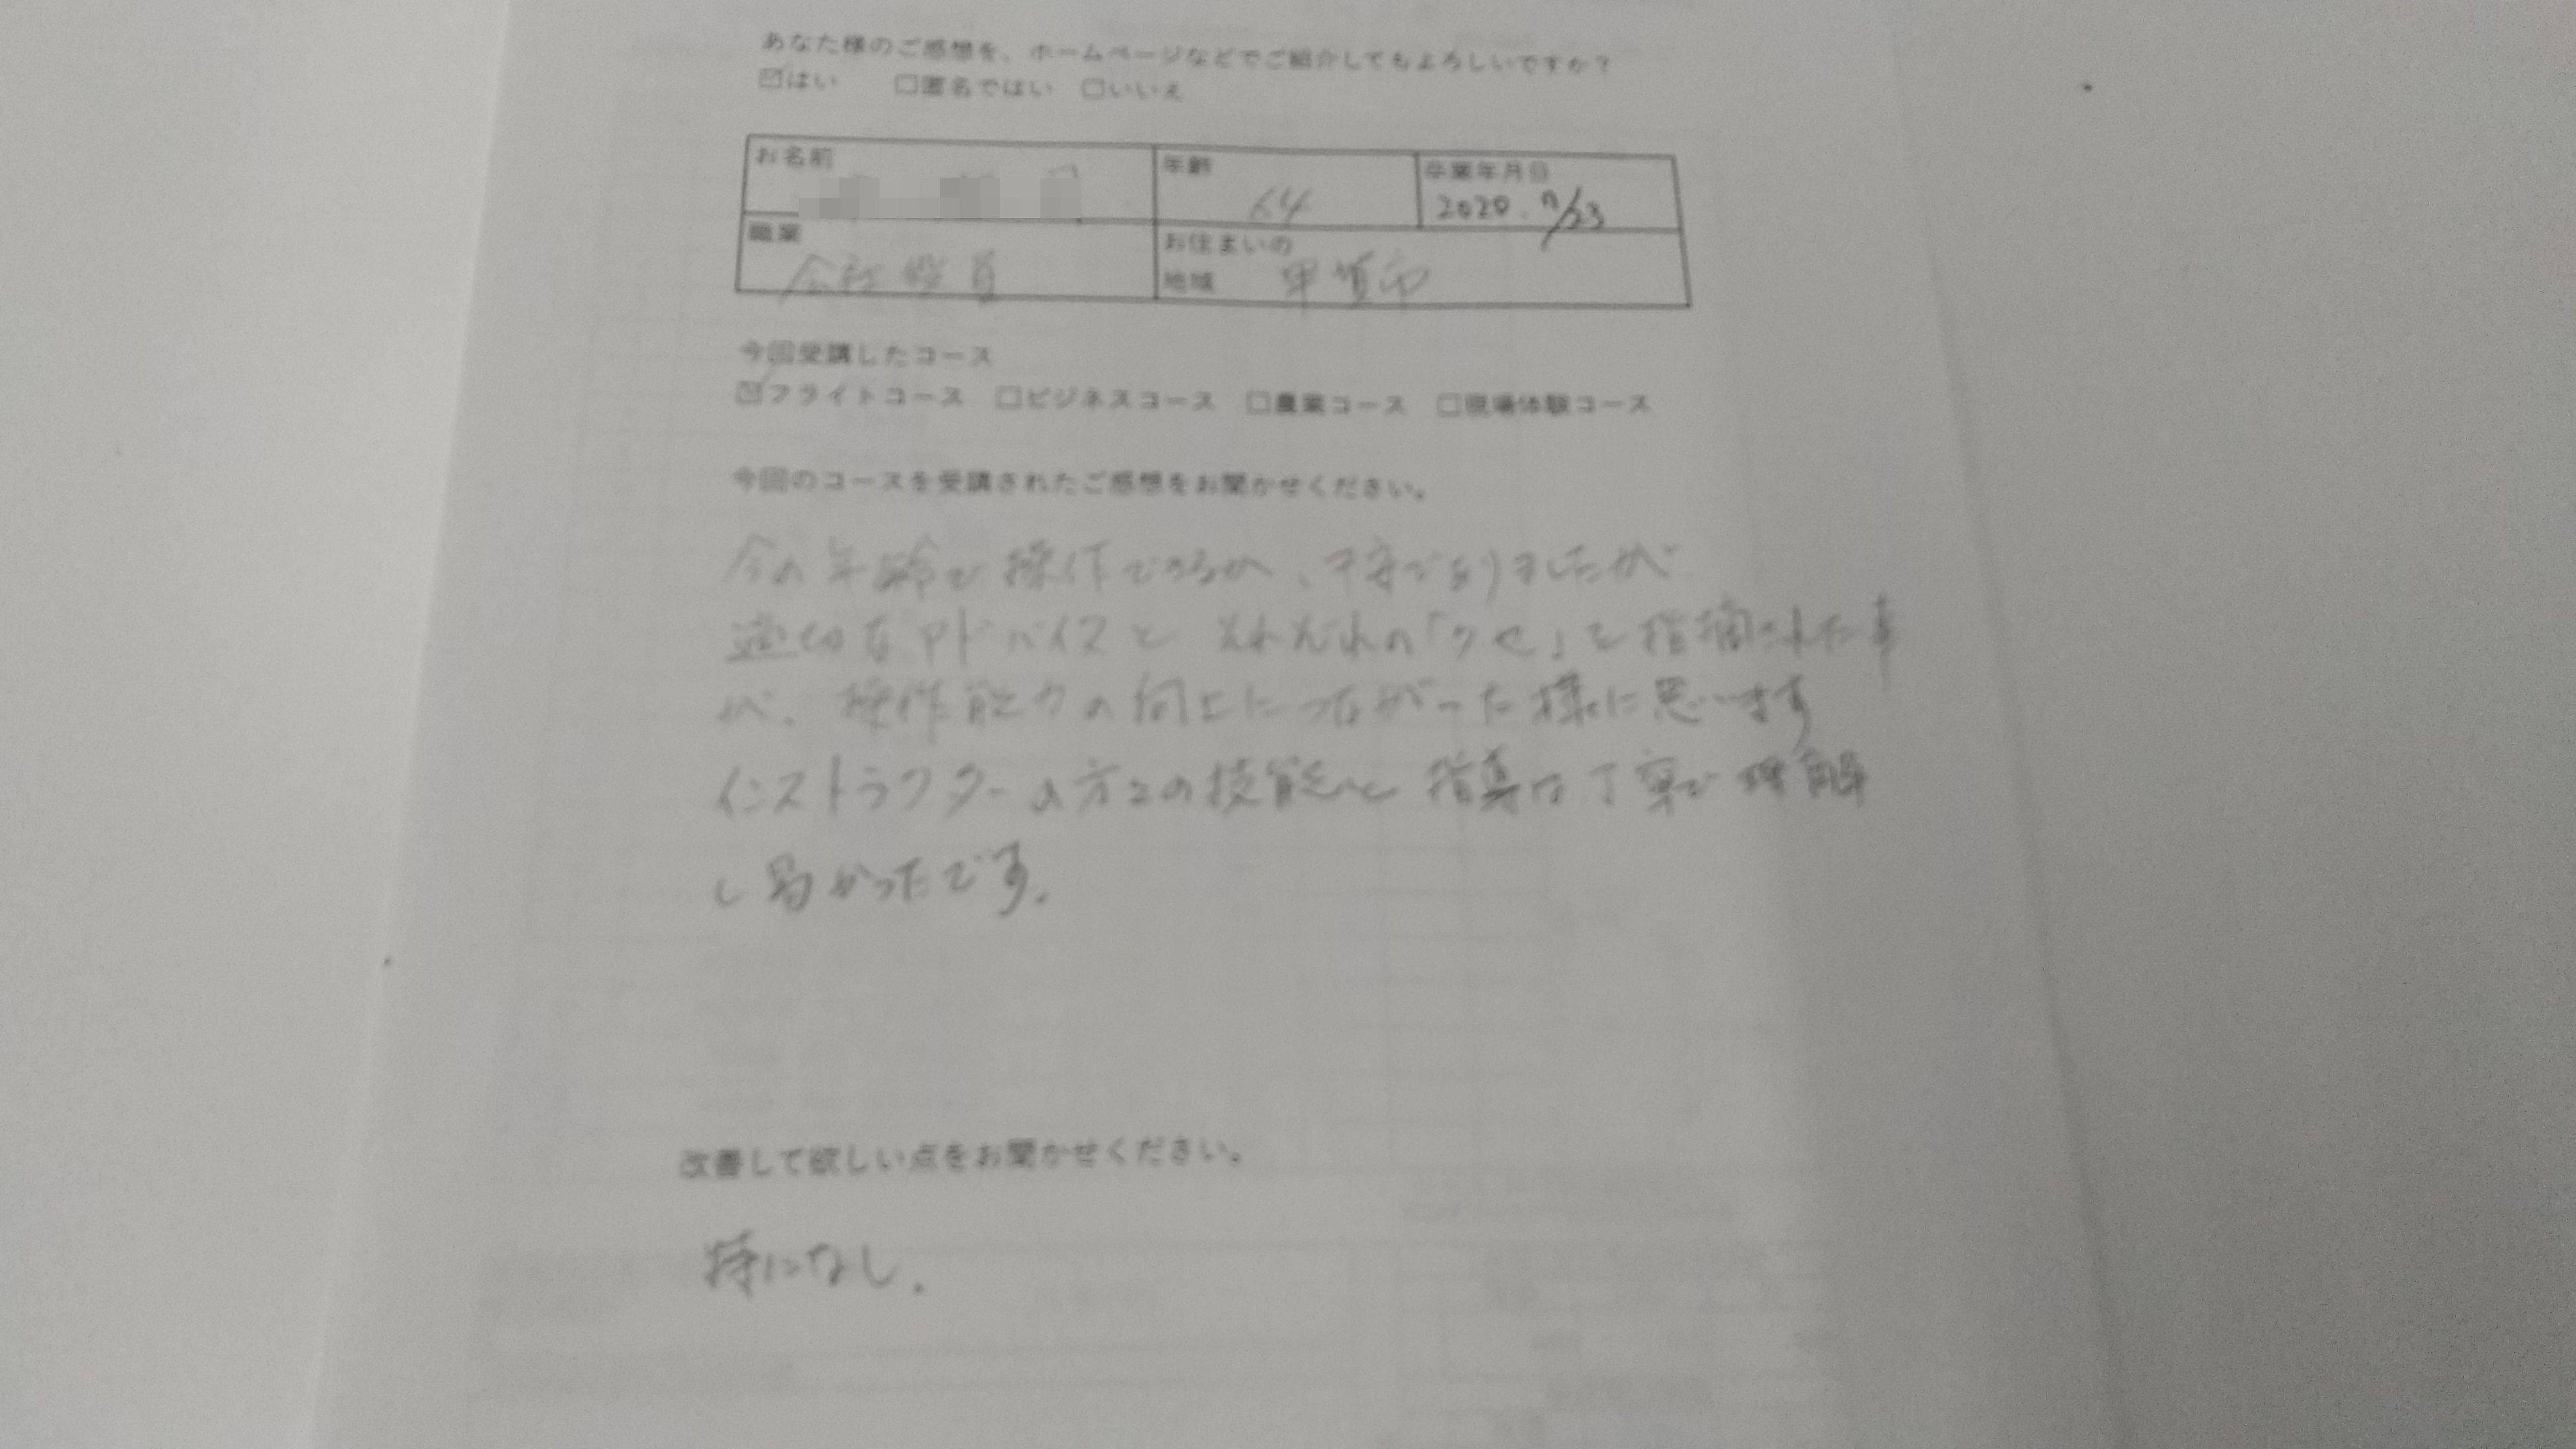 あなた様のご感想を、ホームページなどでご紹介してもよろしいですか？
☑はい □匿名ではい □いいえ
お名前
年齢
64
卒業年月日
2020.7/23
職業
会社役員
お住まいの
地域
甲賀市
今回受講したコース
☑フライトコース □ビジネスコース □農業コース □現場体験コース
今回のコースを受講されたご感想をお聞かせください。
今の年齢で操作できるか、不安で有りましたが
適切なアドバイスと それぞれの「クセ」を指摘された事
が、操作能力の向上につながった様に思います
インストラクターの方々の技能と 指導は丁寧で理解
し易かったです.
改善して欲しい点をお聞かせください。
特になし.